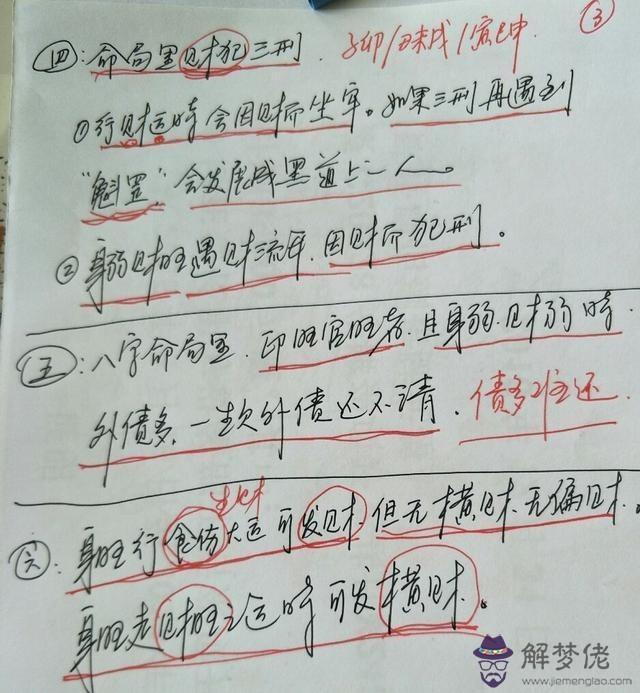 ③
四:命局里财犯三刑. 子卯/丑未戌/寅巳申.
①行财运时会因财而坐牢。如果三刑再遇到
"魁罡"会发展成黑道上一人。
②身弱财旺遇财流年.因财而犯刑。
五:八字命局里.印旺官旺者.且身弱.财弱时.
外债多.一生欠外债还不清. 债多难还.
生财
六:身旺行食伤大运可发财.但无横财.无偏财.
身旺走财旺之运时可发横财。
解梦佬
www.jiemenglao.com